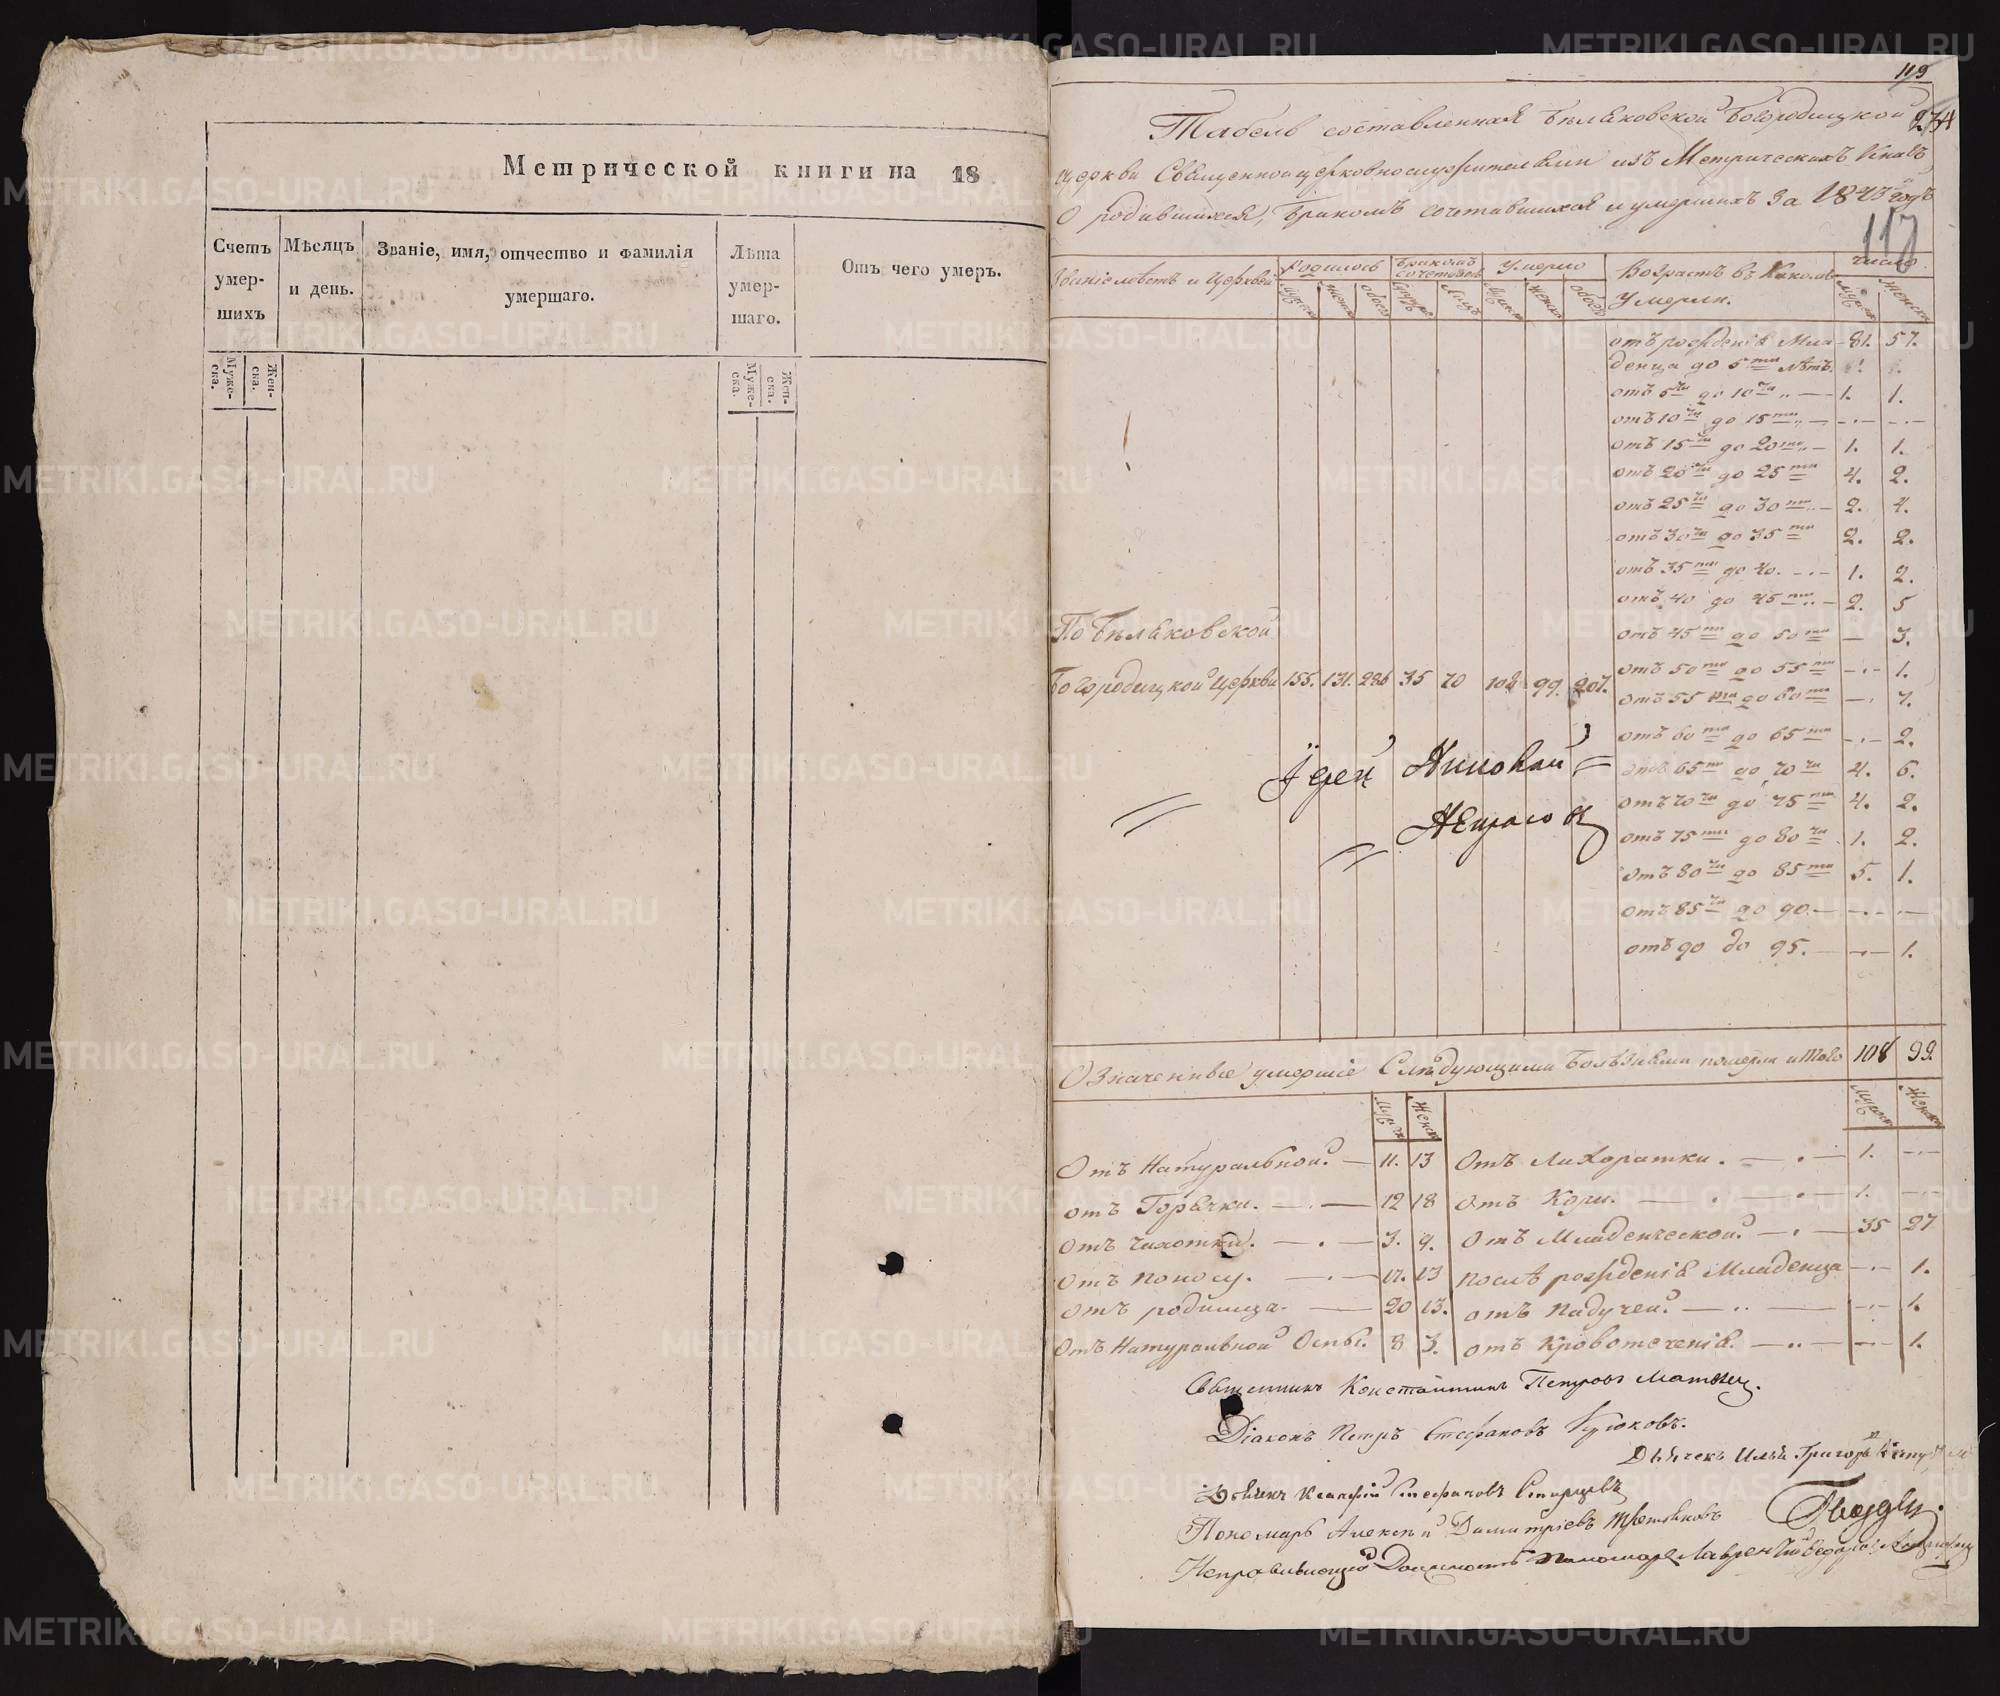 Метрической книги на 18
Счетъ умер-шихъ
Мѣсяцъ и день.
Званіе, имя, отчество и фамилія умершаго.
Лѣта умер-шаго.
Отъ чего умеръ.
Мужеска.
Женска.
Мужеска.
Женска.
119
274
Табель составленная Бѣляковской Богородицкой
церкви Священноцерковнослужителями изъ Метрическихъ Книгъ
о родившихся, бракомъ сочетавшихся и умершихъ за 1843 годъ
117
Званіе мѣстъ и Церквей
Родилось
Бракомъ сочеталось
Умерло
Возрастъ въ какомъ умерли.
число
отъ рожденія Мла- 81. 57.
денца до 5ти лѣтъ.
отъ 5ти до 10ти 1. 1.
отъ 10ти до 15ти — —
отъ 15ти до 20ти 1. 1.
отъ 20ти до 25ти 4. 2.
отъ 25ти до 30ти 2. 4.
отъ 30ти до 35ти 2. 2.
отъ 35ти до 40. 1. 2.
отъ 40 до 45ти 2. 5
отъ 45ти до 50ти — 3.
отъ 50ти до 55ти — 1.
отъ 55ти до 60ти — 7.
отъ 60ти до 65ти — 2.
отъ 65ти до 70ти 4. 6.
отъ 70ти до 75ти 4. 2.
отъ 75ти до 80ти 1. 2.
отъ 80ти до 85ти 5. 1.
отъ 85ти до 90. — —
отъ 90 до 95. — 1.
По Бѣляковской
Богородицкой церкви 155. 131. 286 35 70 108 99. 207.
Іерей
Означенные умершіе Слѣдующими Болѣзнями померли итого 108 99.
Отъ Натуральной. 11. 13
отъ Горячки. 12 18
отъ чахотки. 3. 9.
отъ поносу. 17. 13
отъ родимца. 20 13.
отъ Натуральной Оспы. 8 3.
Отъ Лихоратки. 1. —
отъ Кори. 1. —
отъ Младенческой. 35 27
послѣ рожденія Младенца — 1.
отъ падучей. — 1.
отъ Кровотеченія. — 1.
Священникъ Константинъ Петровъ
Діаконъ Петръ Стефановъ Крюковъ.
Дьячекъ Илья
Дьячекъ Стефановъ
Пономарь Алексѣй Димитріевъ Третьяковъ
Исправляющій Должность Пономаря
METRIKI.GASO-URAL.RU